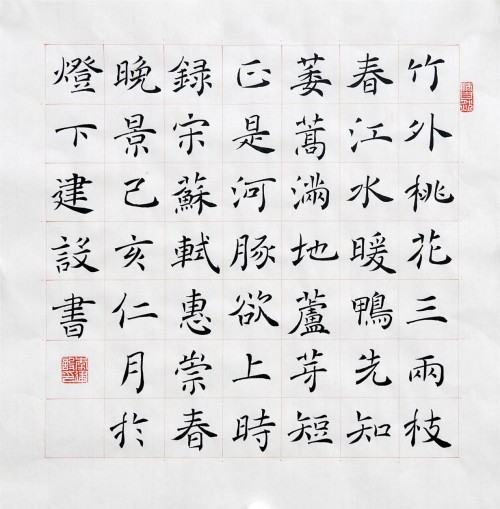 竹外桃花三兩枝
春江水暖鴨先知
蒌蒿滿地蘆芽短
正是河豚欲上時
録宋蘇軾惠崇春
晚景己亥仁月於
燈下建設書